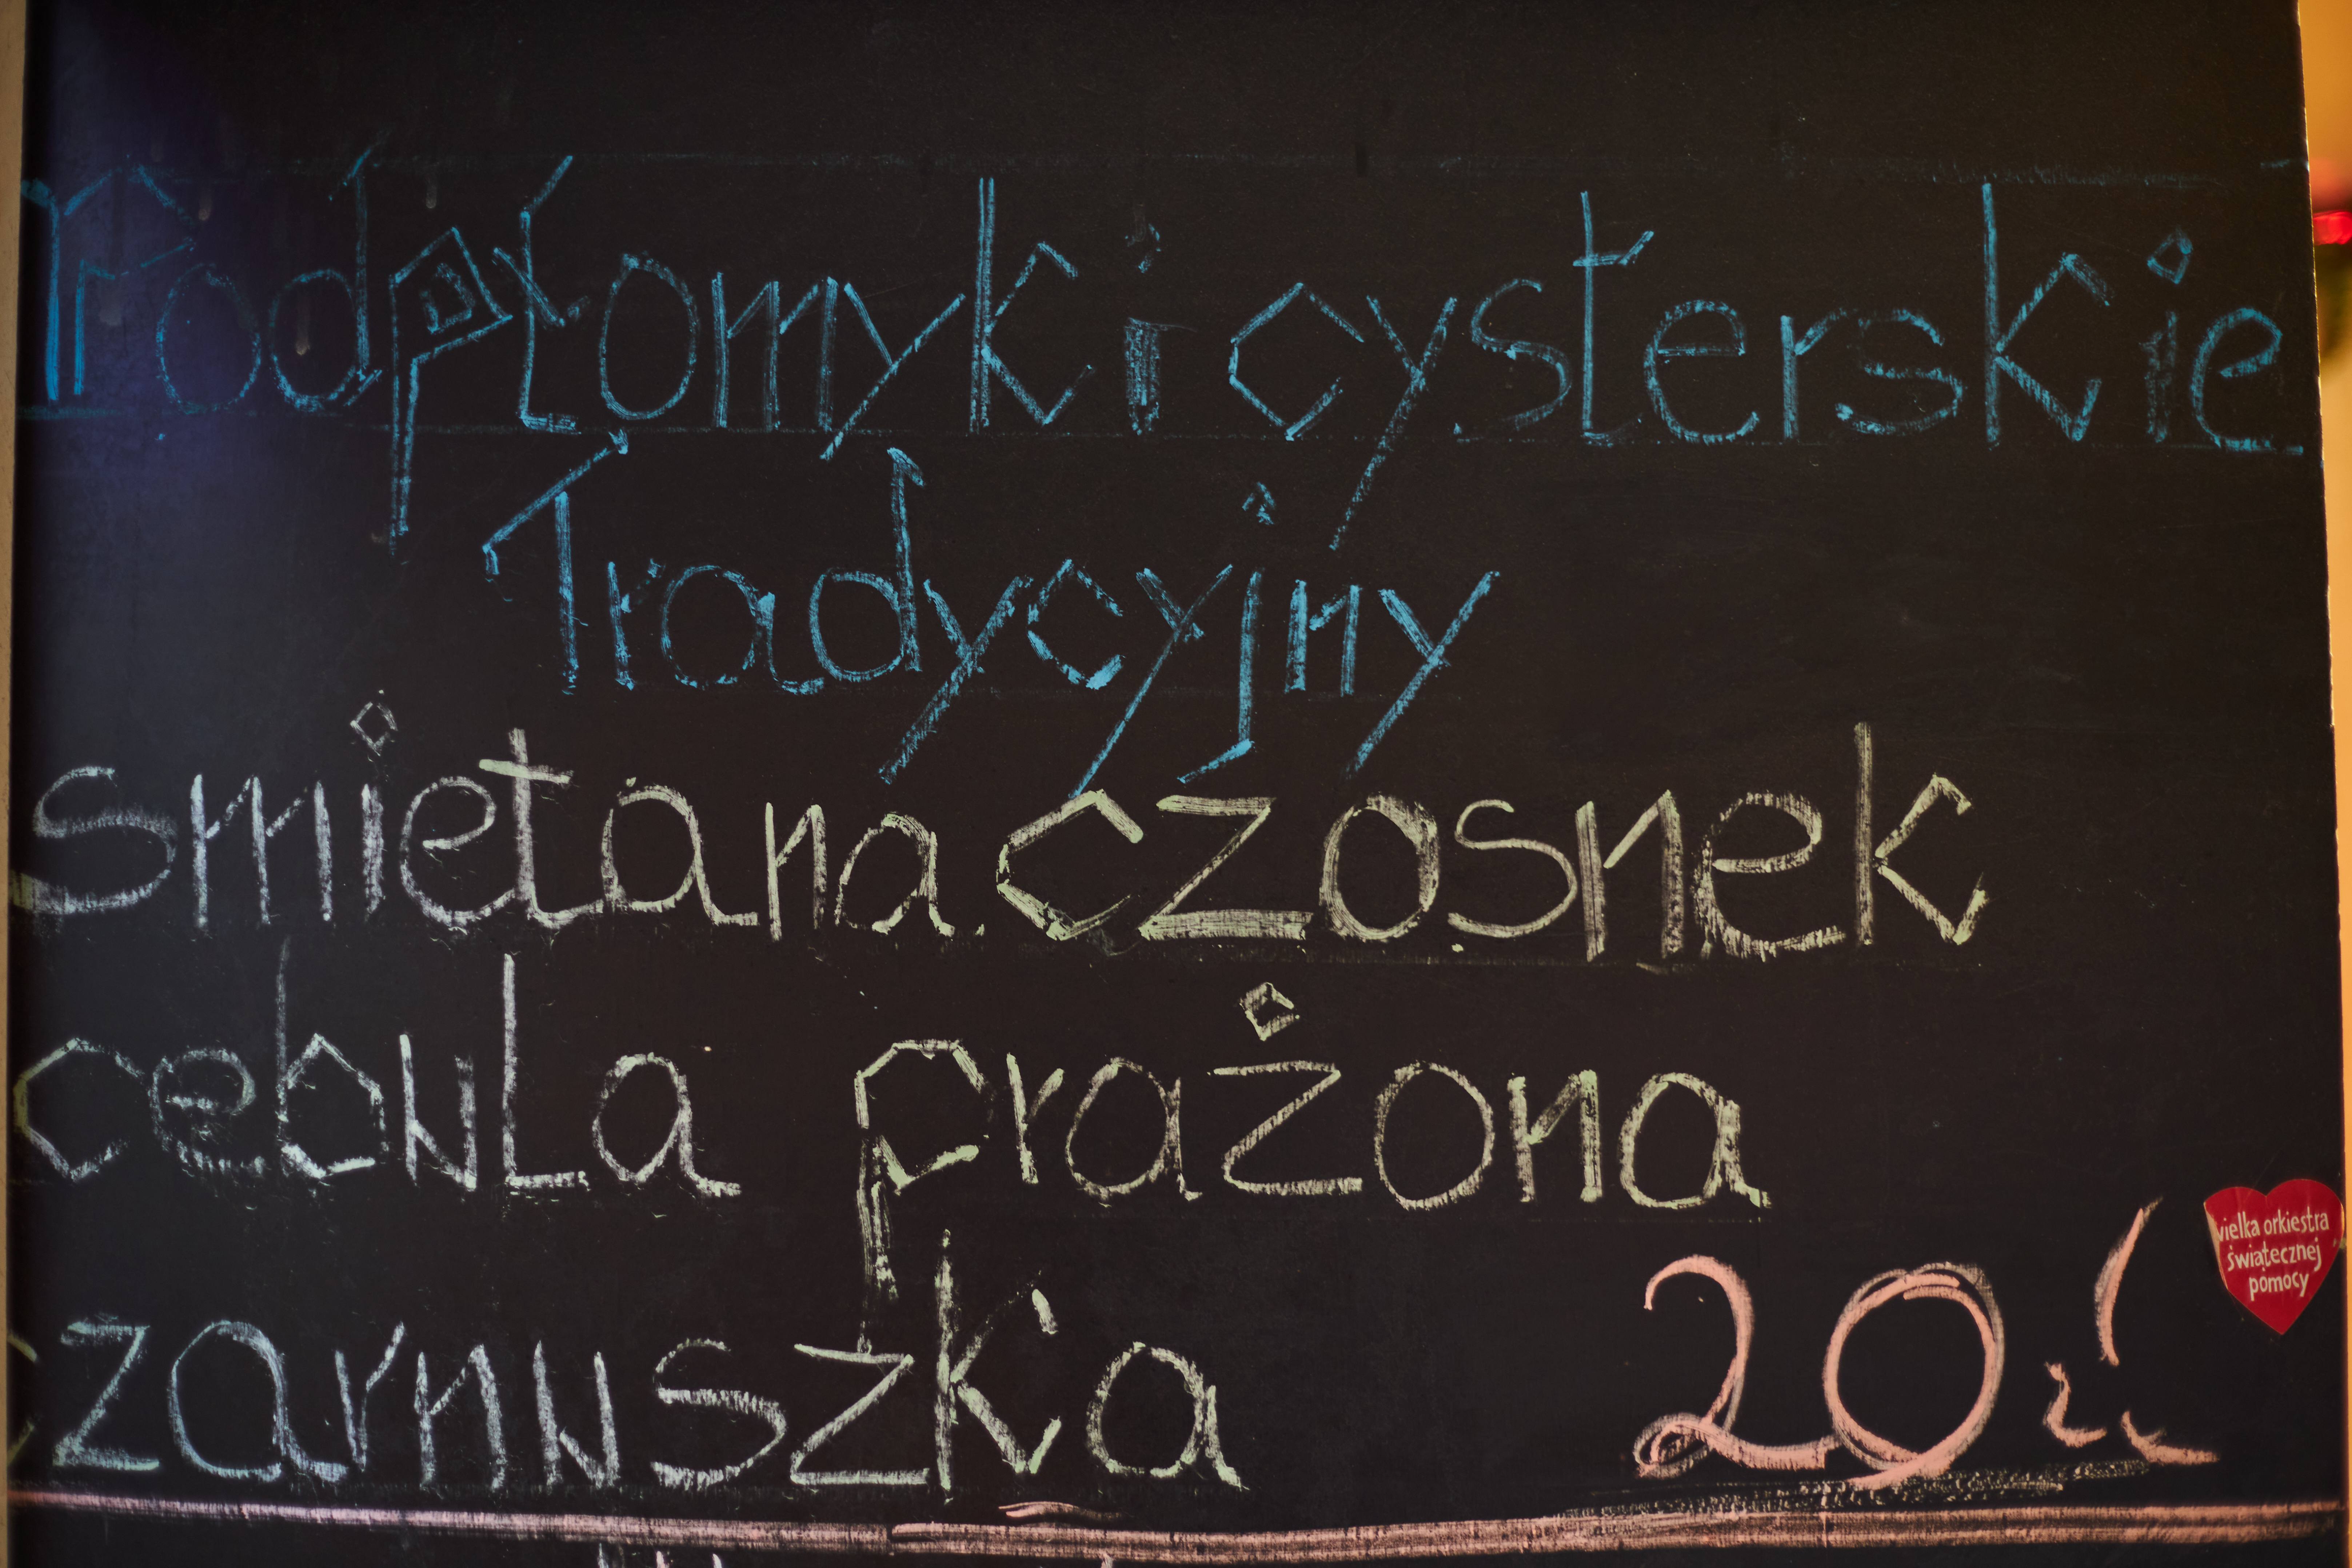 Podpłomyki cysterskie
Tradycyjny
śmietana czosnek
cebula prażona
czarnuszka 20 zł
wielka orkiestra
świątecznej
pomocy